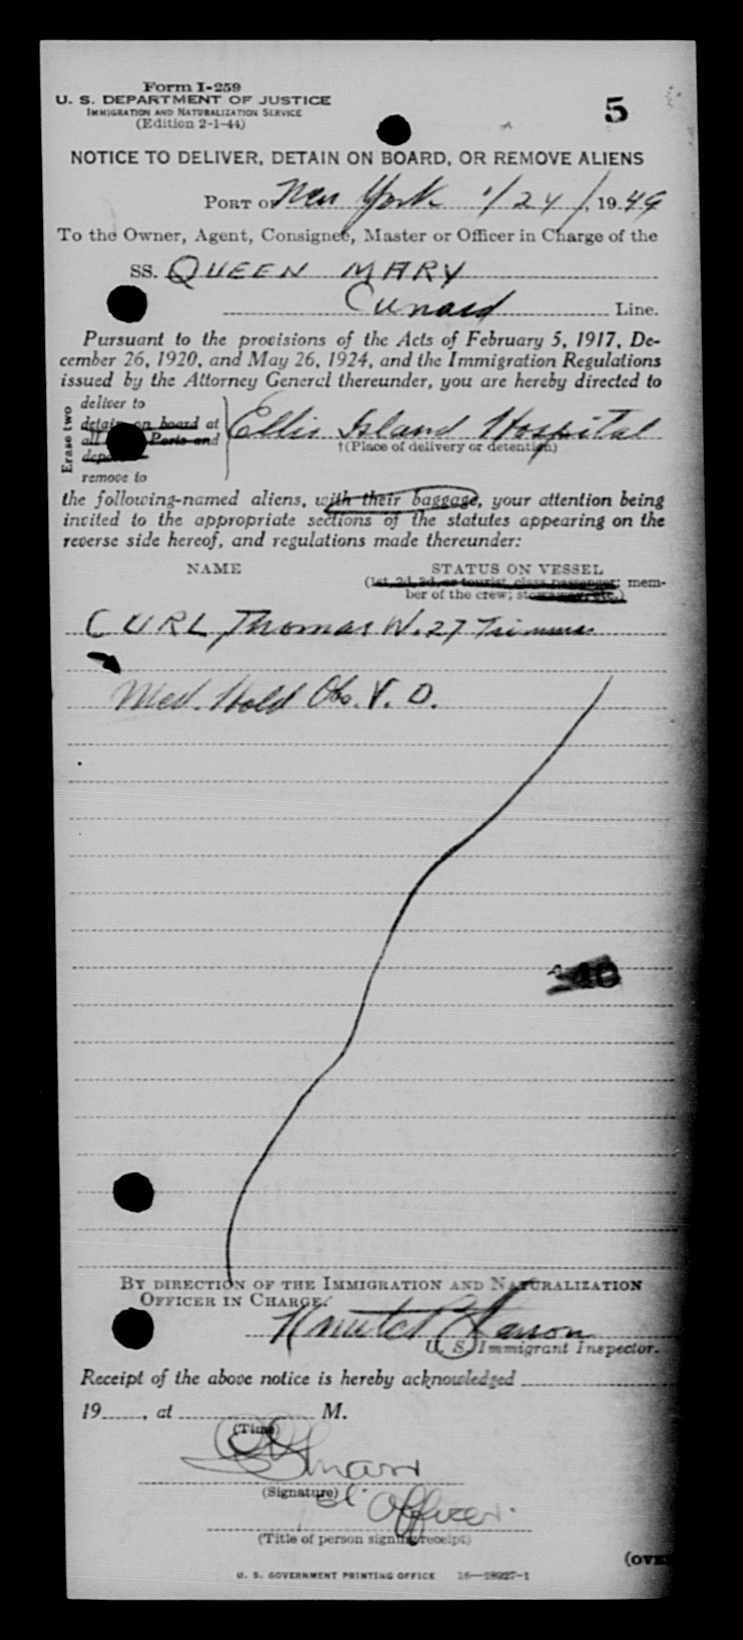 Form I-259
U. S. DEPARTMENT OF JUSTICE
IMMIGRATION AND NATURALIZATION SERVICE
(Edition 2-1-44)
5
NOTICE TO DELIVER, DETAIN ON BOARD, OR REMOVE ALIENS
PORT OF New York 1/24/, 1949
To the Owner, Agent, Consignee, Master or Officer in Charge of the
SS. QUEEN MARY
Cunard Line.
Pursuant to the provisions of the Acts of February 5, 1917, De-
cember 26, 1920, and May 26, 1924, and the Immigration Regulations
issued by the Attorney General thereunder, you are hereby directed to
Erase two
deliver to
detain on board at
all Ports and
remove to
Ellis Island Hospital
†(Place of delivery or detention)
the following-named aliens, with their baggage, your attention being
invited to the appropriate sections of the statutes appearing on the
reverse side hereof, and regulations made thereunder:
NAME STATUS ON VESSEL
(1st, 2d, 3d, or tourist class passenger; mem-
ber of the crew; stowaway, etc.)
CURL Thomas W. 27 Trimmer
Med. Hold Obs. V. D.
40
BY DIRECTION OF THE IMMIGRATION AND NATURALIZATION
OFFICER IN CHARGE.
U. S. Immigrant Inspector.
Receipt of the above notice is hereby acknowledged
19____, at ____ M.
(Time)
(Signature)
Officer.
(Title of person signing receipt)
(OVE
U. S. GOVERNMENT PRINTING OFFICE 16—28927-1